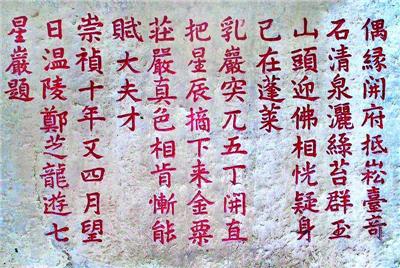 偶緣開府抵崧臺奇
石清泉灑綠苔群玉
山頭迎佛相恍疑身
已在蓬萊
乳巖突兀五丁開直
把星辰摘下來金粟
莊嚴真色相首慚能
賦大夫才
崇禎十年又四月望
日溫陵鄭芝龍遊七
星巖題